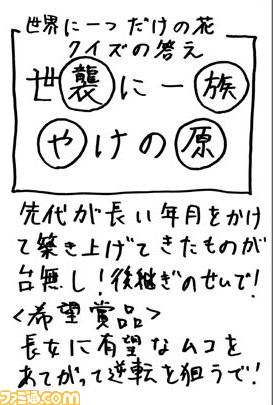 世界に一つだけの花
クイズの答え
世襲に一族
やけの原
先代が長い年月をかけ
て築き上げてきたものが
台無し!後継ぎのせいで!
<希望賞品>
長女に有望なムコを
あてがって逆転を狙うで!
ファミ通.com